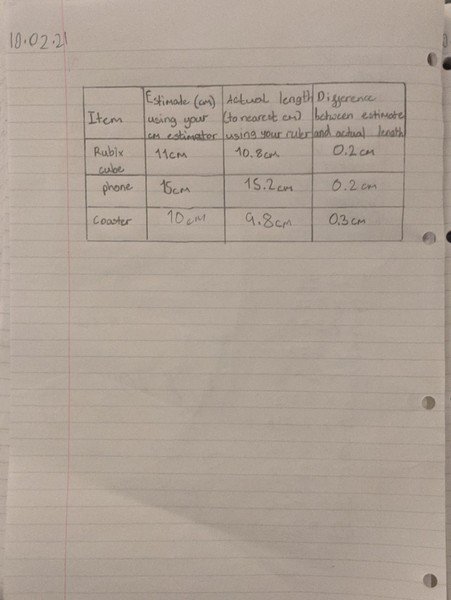 18.02.21
Item
Estimate (cm)
using your
cm estimator
Actual length
(to nearest cm)
using your ruler
Difference
between estimate
and actual length
Rubix
cube
11cm
10.8cm
0.2cm
phone
15cm
15.2cm
0.2cm
Coaster
10cm
9.8cm
0.3cm